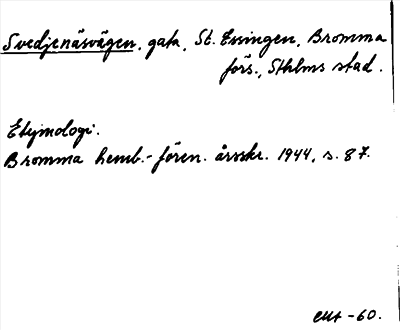 Svedjenäsvägen, gata, St. Essingen, Bromma
förs., Sthlms stad.
Etymologi.
Bromma hemb.-fören. årsskr. 1944, s. 87.
-60.